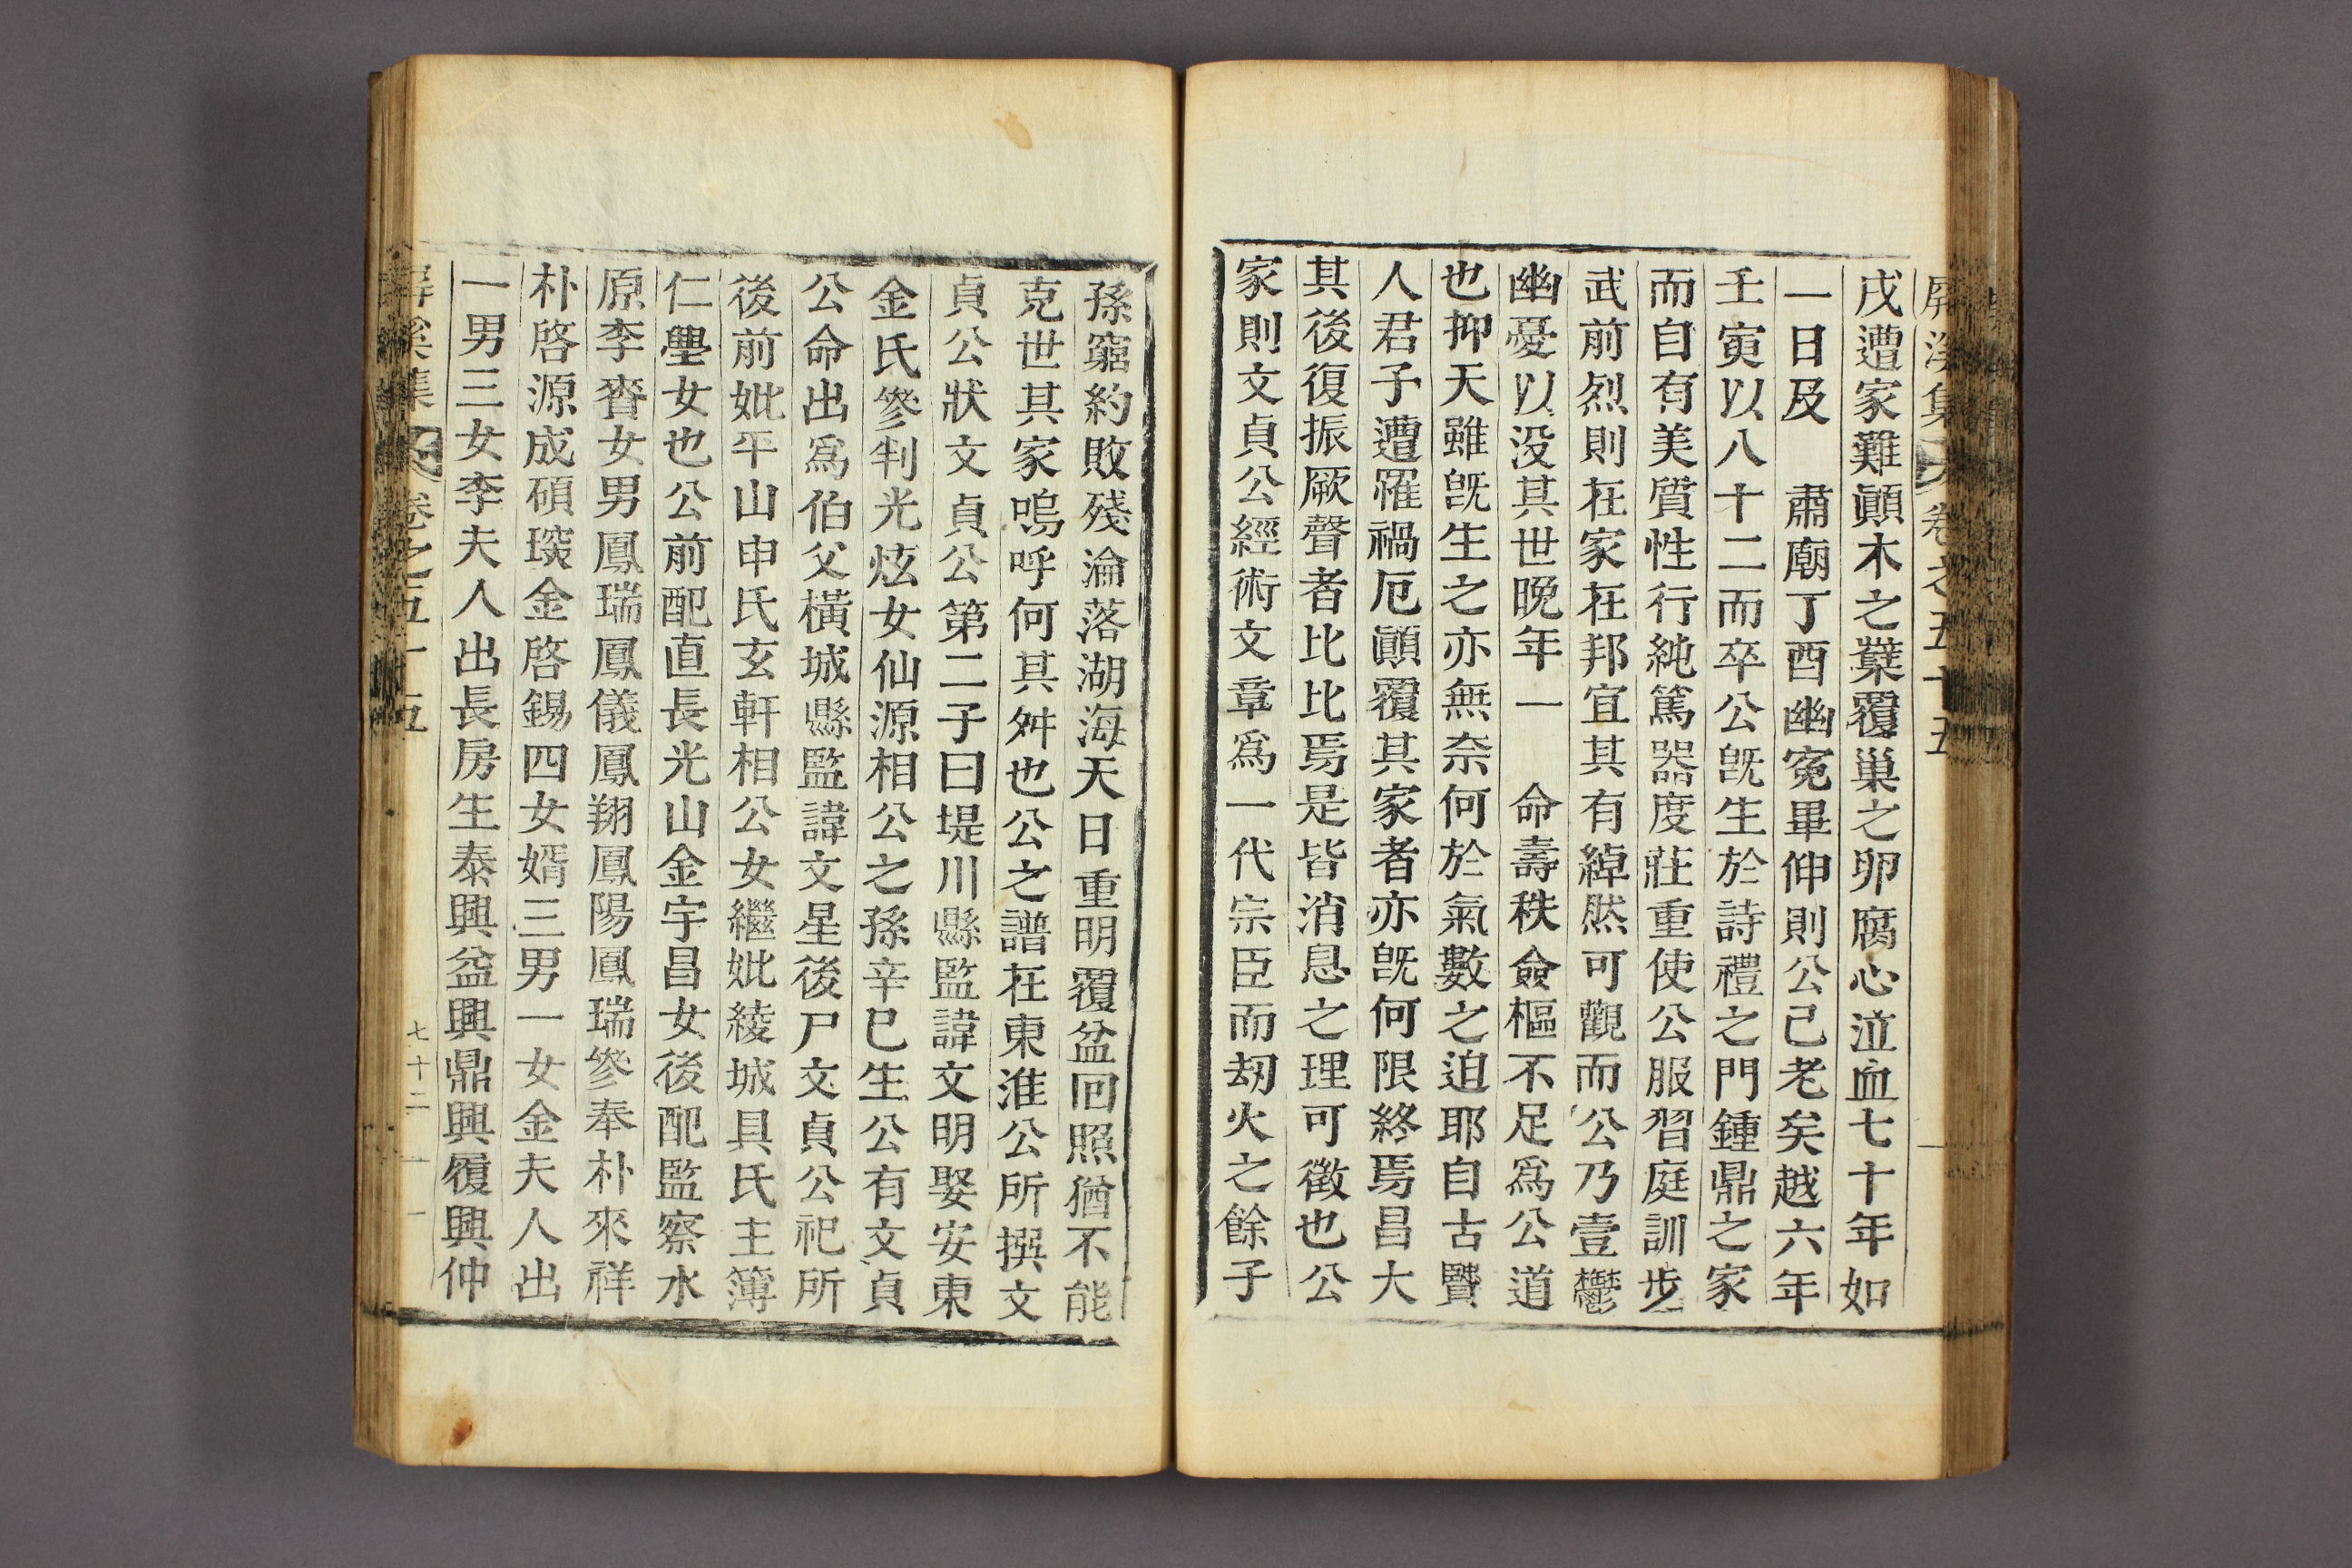 屏溪集 卷之五十五
戌遭家難顚木之蘖覆巢之卵腐心泣血七十年如
一日及 肅廟丁酉幽寃畢伸則公己老矣越六年
壬寅以八十二而卒公旣生於詩禮之門鍾鼎之家
而自有美質性行純篤器度莊重使公服習庭訓步
武前烈則在家在邦宜其有綽然可觀而公乃壹鬱
幽憂以没其世晩年一 命壽秩僉樞不足爲公道
也抑天雖旣生之亦無柰何於氣數之迫耶自古賢
人君子遭罹禍厄顚覆其家者亦旣何限終焉昌大
其後復振厥聲者比比焉是皆消息之理可徵也公
家則文貞公經術文章爲一代宗臣而刧火之餘子
孫窮約敗殘淪落湖海天日重明覆盆回照猶不能
克世其家嗚呼何其舛也公之譜在東淮公所撰文
貞公狀文貞公第二子曰堤川縣監諱文明娶安東
金氏參判光炫女仙源相公之孫辛巳生公有文貞
公命出爲伯父橫城縣監諱文星後尸文貞公祀所
後前妣平山申氏玄軒相公女繼妣綾城具氏主簿
仁壆女也公前配直長光山金宇昌女後配監察水
原李㬱女男鳳瑞鳳儀鳳翔鳳陽鳳瑞參奉朴來祥
朴啓源成碩瑍金啓錫四女婿三男一女金夫人出
一男三女李夫人出長房生泰興益興鼎興履興仲
屏溪集 卷之五十五 七十二